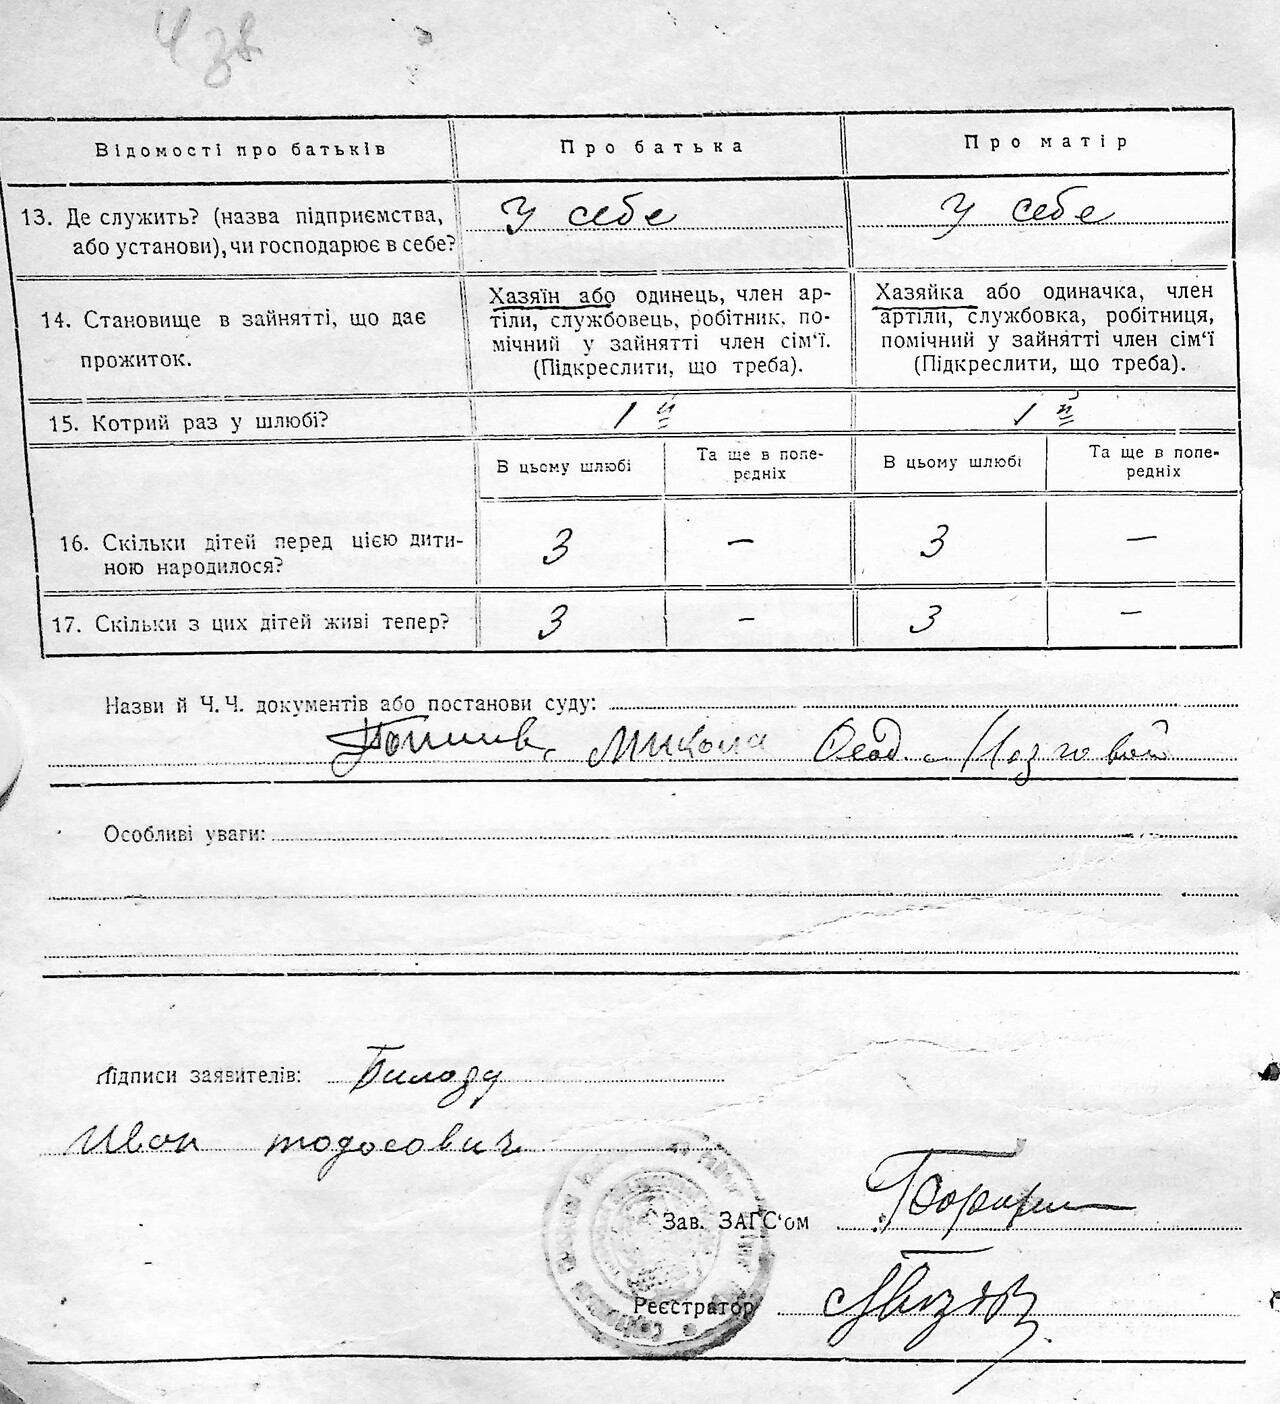 Відомості про батьків
Про батька
Про матір
13. Де служить? (назва підприємства,
або установи), чи господарює в себе?
У себе
У себе
14. Становище в зайнятті, що дає
прожиток.
Хазяїн або одинець, член ар-
тіли, службовець, робітник, по-
мічний у зайнятті член сім'ї.
(Підкреслити, що треба).
Хазяйка або одиначка, член
артіли, службовка, робітниця,
помічний у зайнятті член сім'ї
(Підкреслити, що треба).
15. Котрий раз у шлюбі?
1й
1й
В цьому шлюбі
Та ще в попе-
редніх
В цьому шлюбі
Та ще в попе-
редніх
16. Скільки дітей перед цією дити-
ною народилося?
3 — 3 —
17. Скільки з цих дітей живі тепер?
3 – 3 –
Назви й Ч.Ч. документів або постанови суду:
Микола
Особливі уваги:
Підписи заявителів:
Иван тодосович
Зав. ЗАГС'ом
Реєстратор